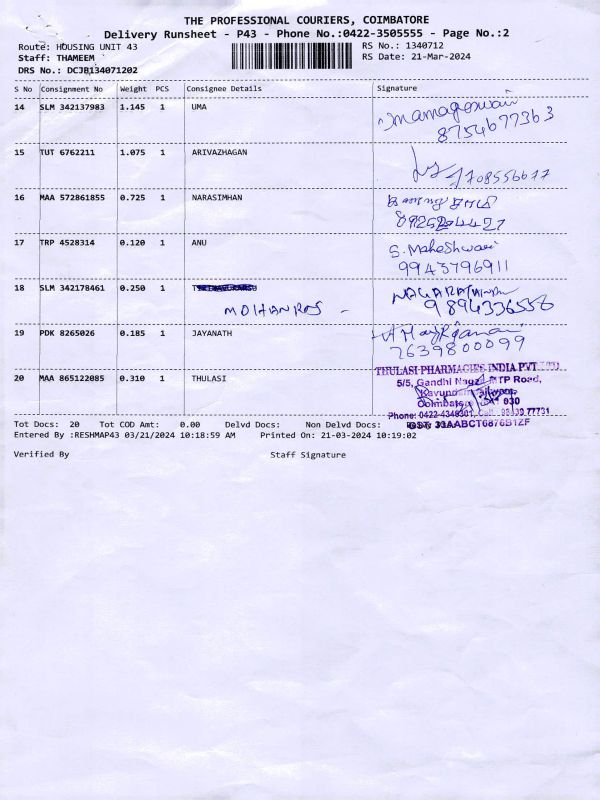 THE PROFESSIONAL COURIERS, COIMBATORE
Delivery Runsheet - P43 - Phone No.:0422-3505555 - Page No.:2
Route: HOUSING UNIT 43 RS No.: 1340712
Staff: THAMEEM RS Date: 21-Mar-2024
DRS No.: DCJB134071202
S No Consignment No Weight PCS Consignee Details Signature
14 SLM 342137983 1.145 1 UMA
8754677363
15 TUT 6762211 1.075 1 ARIVAZHAGAN
16 MAA 572861855 0.725 1 NARASIMHAN
17 TRP 4528314 0.120 1 ANU S. Maheshwari
9943796911
18 SLM 342178461 0.250 1
MOHANRAJ - 9894336556
19 PDK 8265026 0.185 1 JAYANATH
7639800099
20 MAA 865122085 0.310 1 THULASI THULASI PHARMACIES INDIA PVT LTD.
5/5, Gandhi Nagar, MTP Road,
Coimbatore 030
Phone: 0422-4348301,
GST: 33AABCT6876B1ZF
Tot Docs: 20 Tot COD Amt: 0.00 Delvd Docs: Non Delvd Docs:
Entered By :RESHMAP43 03/21/2024 10:18:59 AM Printed On: 21-03-2024 10:19:02
Verified By Staff Signature